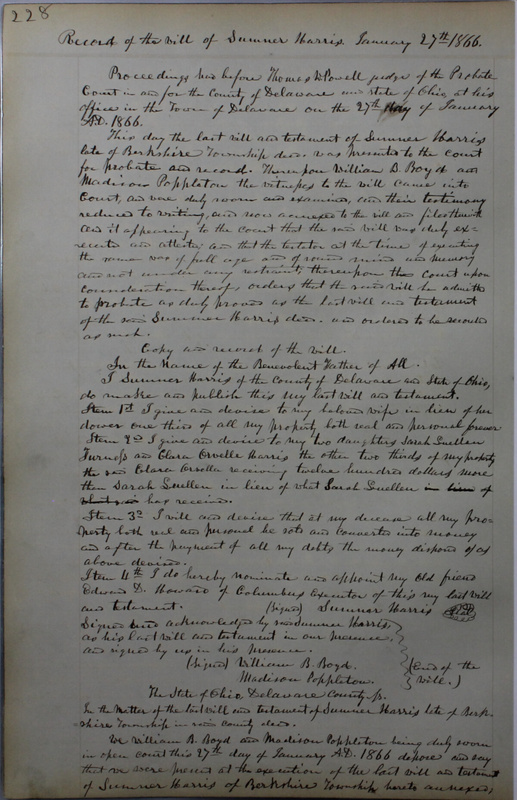 228
Record of the Will of Sumner Harris. January 27th 1866.
Proceedings had before Thomas W Powell judge of the Probate
Court in and for the County of Delaware and state of Ohio, at his
office in the Town of Delaware on the 27th day of January
A.D. 1866.
This day the last will and testament of Sumner Harris
late of Berkshire Township decd. was presented to the court
for probate and record. Thereupon William B. Boyd and
Madison Poppleton the witnesses to the will came into
Court, and were duly sworn and examined, and their testimony
reduced to writing, and now annexed to the will and filed therewith
And it appearing to the court that the said will was duly ex=
ecuted and attested and that the testator at the time of executing
the same was of full age and of sound mind and memory
and not under any restraint, thereupon the Court upon
consideration thereof orders that the said will be admitted
to probate as duly proved as the last will and testament
of the said Sumner Harris decd. and ordered to be recorded
as such.
Copy and record of the will.
In the Name of the Benevolent Father of All.
I Sumner Harris of the County of Delaware and State of Ohio,
do make and publish this my last will and testament.
Item 1st I give and devise to my beloved wife in lieu of her
dower one third of all my property both real and personal forever
Item 2d I give and devise to my two daughters Sarah Luellen
Furness and Clara Orvella Harris the other two thirds of my property
the said Clara Orvella receiving twelve hundred dollars more
than Sarah Luellen in lieu of what Sarah Luellen in lieu of
has received.
Item 3d I will and devise that at my decease all my pro=
perty both real and personal be sold and converted into money
and after the payment of all my debts the money disposed of as
above devised.
Item 4th I do hereby nominate and appoint my old friend
Edward D. Howard of Columbus Executor of this my last will
and testament. (Signed) Sumner Harris
Signed and acknowledged by said Sumner Harris,
as his last will and testament in our presence
and signed by us in his presence.
(Signed) William B. Boyd. (End of the
Madison Poppleton. Will.)
The State of Ohio Delaware County ss.
In the Matter of the last will and testament of Sumner Harris late of Berk-
shire Township in said County decd.
We William B. Boyd and Madison Poppleton being duly sworn
in open court this 27th day of January A.D. 1866 depose and say
that we were present at the execution of the last will and testament
of Sumner Harris of Berkshire Township hereto annexed,